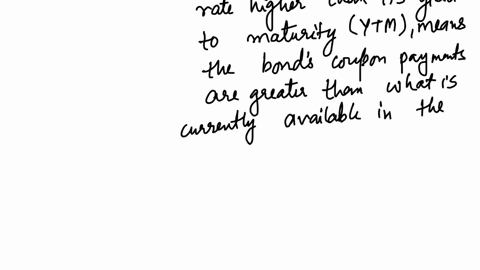 rate higher than its yield
to maturity (YTM), means
the bond's coupon payments
are greater than what is
currently available in the